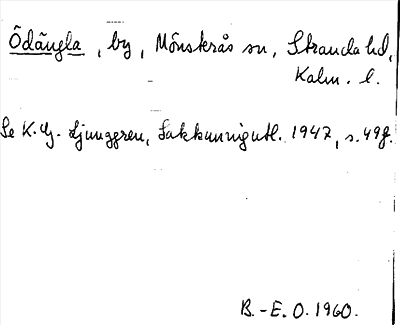 Ödängla, by, Mönsterås sn, Stranda hd,
Kalm. l.
Se K.G. Ljunggren, Sakkunnigutl. 1947, s. 49f.
B.-E. O. 1960.